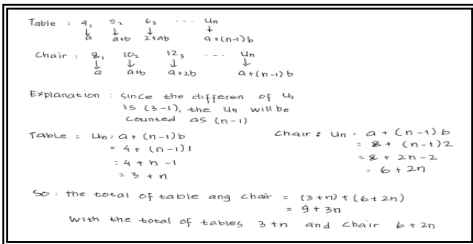 Table : 4, 5, 6, ... Un
↓ ↓ ↓ ↓
a a+b 2+ab a+(n-1)b
Chair : 8, 10, 12, ... Un
↓ ↓ ↓ ↓
a a+b a+2b a+(n-1)b
Explanation : since the differen of U,
is (3-1), the Un will be
counted as (n-1)
Table : Un = a + (n-1)b
= 4 + (n-1)1
= 4 + n - 1
= 3 + n
Chair : Un = a + (n-1)b
= 8 + (n-1)2
= 8 + 2n - 2
= 6 + 2n
So : the total of table ang chair = (3+n) + (6+2n)
= 9 + 3n
With the total of tables 3+n and chair 6+2n